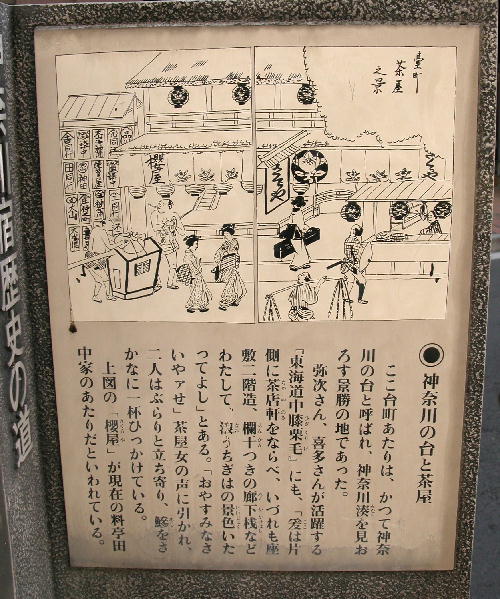 臺町
茶屋
之景
櫻屋
さくらや
さくらや
神奈川宿歴史の道
● 神奈川の台と茶屋
ここ台町あたりは、かつて神奈
川の台と呼ばれ、神奈川湊を見お
ろす景勝の地であった。
弥次さん、喜多さんが活躍する
『東海道中膝栗毛』にも、「爰は片
側に茶店軒をならべ、いづれも座
敷二階造、欄干つきの廊下桟など
わたして、浪うちぎはの景色いた
ってよし」とある。「おやすみなさ
いやァせ」茶屋女の声に引かれ、
二人はぶらりと立ち寄り、鯵をさ
かなに一杯ひっかけている。
上図の「櫻屋」が現在の料亭田
中家のあたりだといわれている。